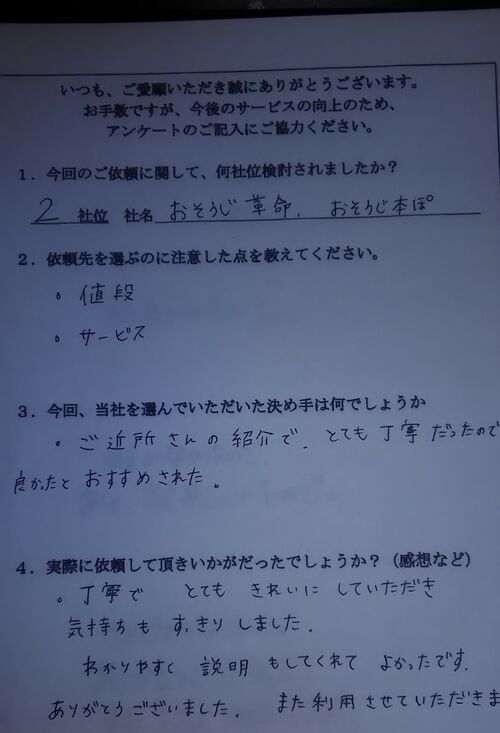 いつも、ご愛願いただき誠にありがとうございます。
お手数ですが、今後のサービスの向上のため、
アンケートのご記入にご協力ください。
1．今回のご依頼に関して、何社位検討されましたか？
2 社位 社名 おそうじ革命、おそうじ本ぽ
2．依頼先を選ぶのに注意した点を教えてください。
。値段
。サービス
3．今回、当社を選んでいただいた決め手は何でしょうか
・ご近所さんの紹介で、とても丁寧だったので
良かったとおすすめされた。
4．実際に依頼して頂きいかがだったでしょうか？（感想など）
。丁寧で とても きれいに していただき
気持ちも すっきり しました。
わかりやすく 説明 もしてくれて よかったです。
ありがとうございました。 また利用させていただきま